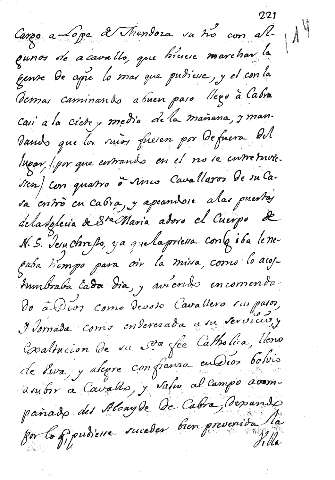 221
114
Cargo a Lope de Mendoza su tio con al
gunos de acavallo, que hiciese marchar la
gente de apie lo mas que pudiese, y el con la
demas caminando a buen paso llegò à Cabra
casi a la siete y media de la mañana, y man-
dando que los suios fuesen por de fuera del
lugar, (por que entrando en el no se entretuvie-
sen) con quatro ò sinco Cavalleros de su Ca-
sa entrò en Cabra, y apeandose a las puertas
de la Iglesia de Sta Maria adoro el Cuerpo de
N. S. Jesuchristo, ya que la priessa con q iba le ne-
gaba tiempo para oir la misa, como lo acos-
tumbraba cada dia, y aviendo encomenda-
do à Dios como devoto Cavallero sus pasos,
y Jornada como enderesada a su servicio, y
Exaltacion de su Sta fee Catholica, lleno
de viva, y alegre confianza en Dios bolvio
a subir a Cavallo, y salio al campo acom-
pañado del Alcayde de Cabra, dexando
por lo q pudiesse suceder bien prevenida la
Villa